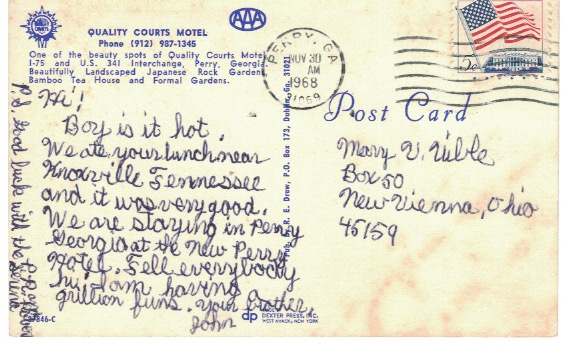 QUALITY COURTS MOTEL
Phone (912) 987-1345
One of the beauty spots of Quality Courts Motel
I-75 and U.S. 341 Interchange, Perry, Georgia.
Beautifully Landscaped Japanese Rock Garden,
Bamboo Tea House and Formal Gardens.
AAA
PERRY, GA.
NOV 30
AM
1968
31069
5c
Post Card
Hi!
Boy is it hot.
We ate your lunch near
Knoxville Tennessee
and it was very good.
We are staying in Perry
Georgia at the New Perry
Hotel. Tell everybody
hi. I am having
grillion funs. Your brother,
John
P.S. Good luck with the
Pub. by R. E. Drew, P.O. Box 173, Dublin, Ga. 31021
Mary V. Uible
Box 50
New Vienna, Ohio
45159
37846-C
dp
DEXTER PRESS, INC.
WEST NYACK, NEW YORK